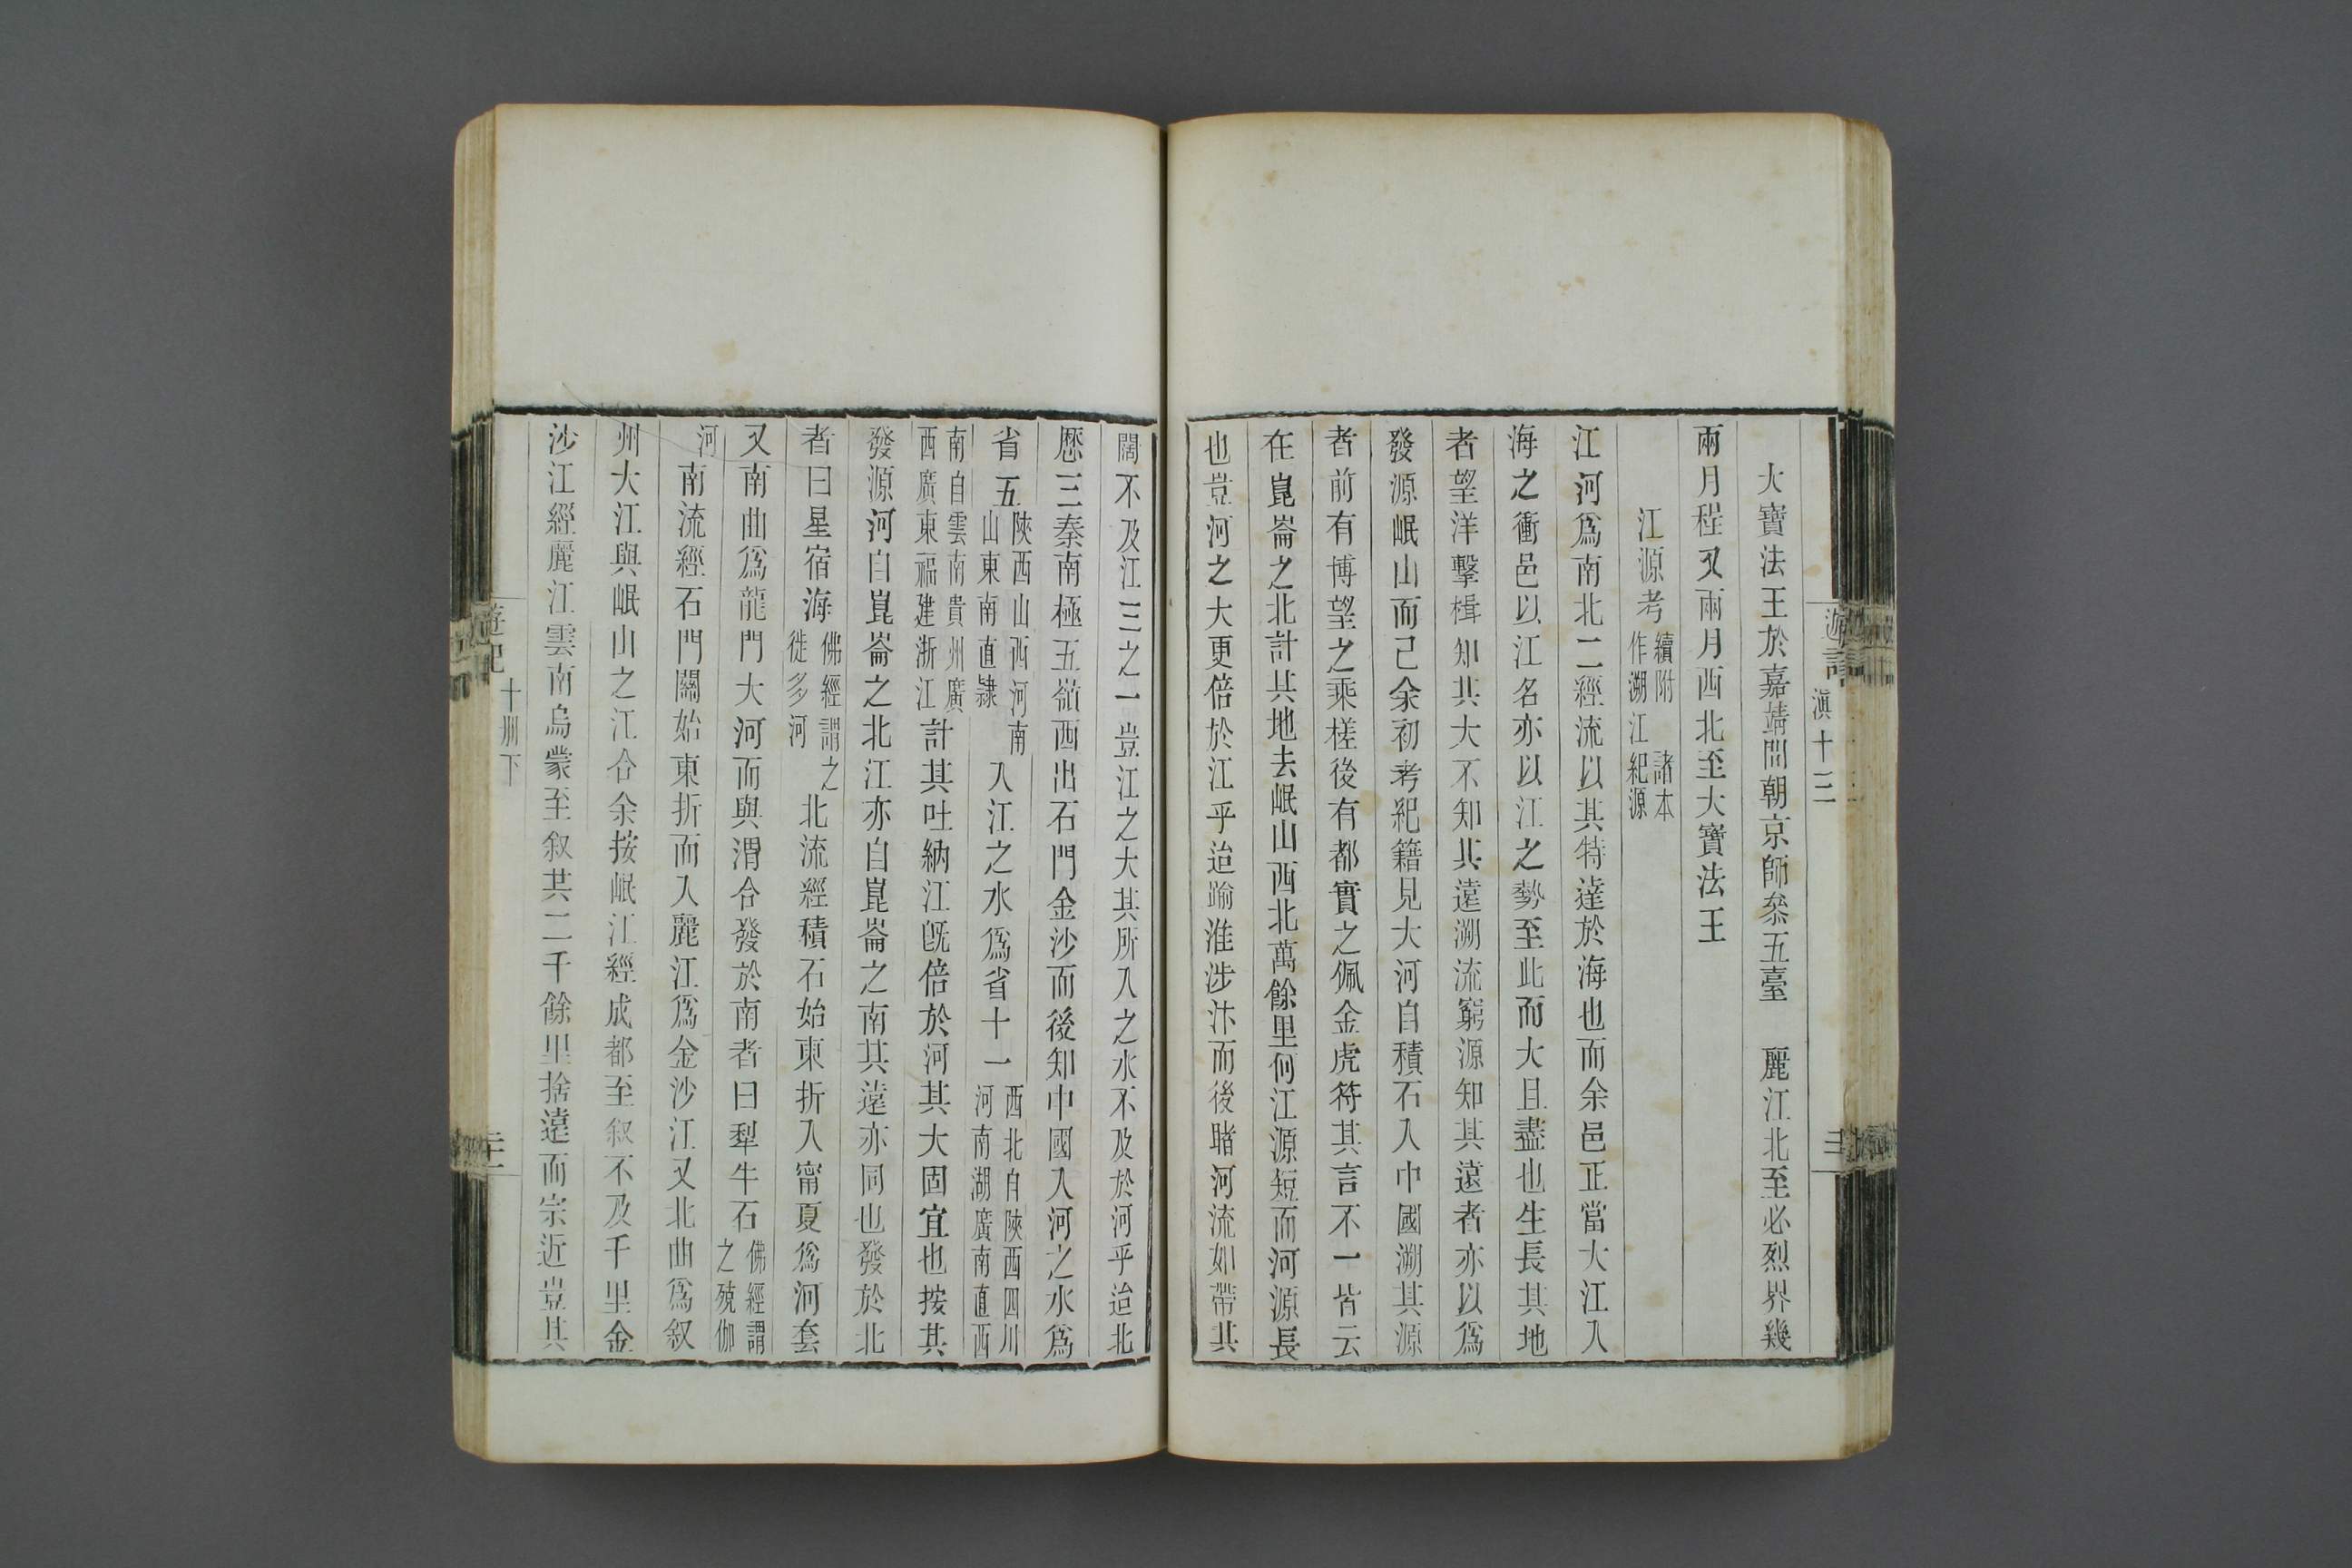 遊記
滇十三
大寶法王於嘉靖間朝京師叅五臺　麗江北至必烈界幾
兩月程又兩月西北至大寶法王
江源考續附　諸本作溯江紀源
江河爲南北二經流以其特達於海也而余邑正當大江入
海之衝邑以江名亦以江之勢至此而大且盡也生長其地
者望洋擊楫知其大不知其遠溯流窮源知其遠者亦以爲
發源岷山而已余初考紀籍見大河自積石入中國溯其源
者前有博望之乘槎後有都實之佩金虎符其言不一皆云
在崑崙之北計其地去岷山西北萬餘里何江源短而河源長
也豈河之大更倍於江乎迨踰淮涉汴而後睹河流如帶其
闊不及江三之一豈江之大其所入之水不及於河乎迨北
歷三秦南極五嶺西出石門金沙而後知中國入河之水爲
省五陝西山西河南山東南直隸入江之水爲省十一西北自陝西四川河南湖廣南直西
南自雲南貴州廣西廣東福建浙江計其吐納江旣倍於河其大固宜也按其
發源河自崑崙之北江亦自崑崙之南其遠亦同也發於北
者曰星宿海佛經謂之徙多河北流經積石始東折入甯夏爲河套
又南曲爲龍門大河而與渭合發於南者曰犁牛石佛經謂之殑伽
河南流經石門關始東折而入麗江爲金沙江又北曲爲叙
州大江與岷山之江合余按岷江經成都至叙不及千里金
沙江經麗江雲南烏蒙至叙共二千餘里捨遠而宗近豈其
遊記
十册下